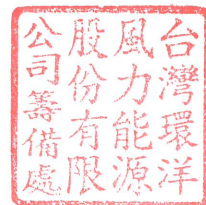 台灣環洋
風力能源
股份有限
公司籌備處